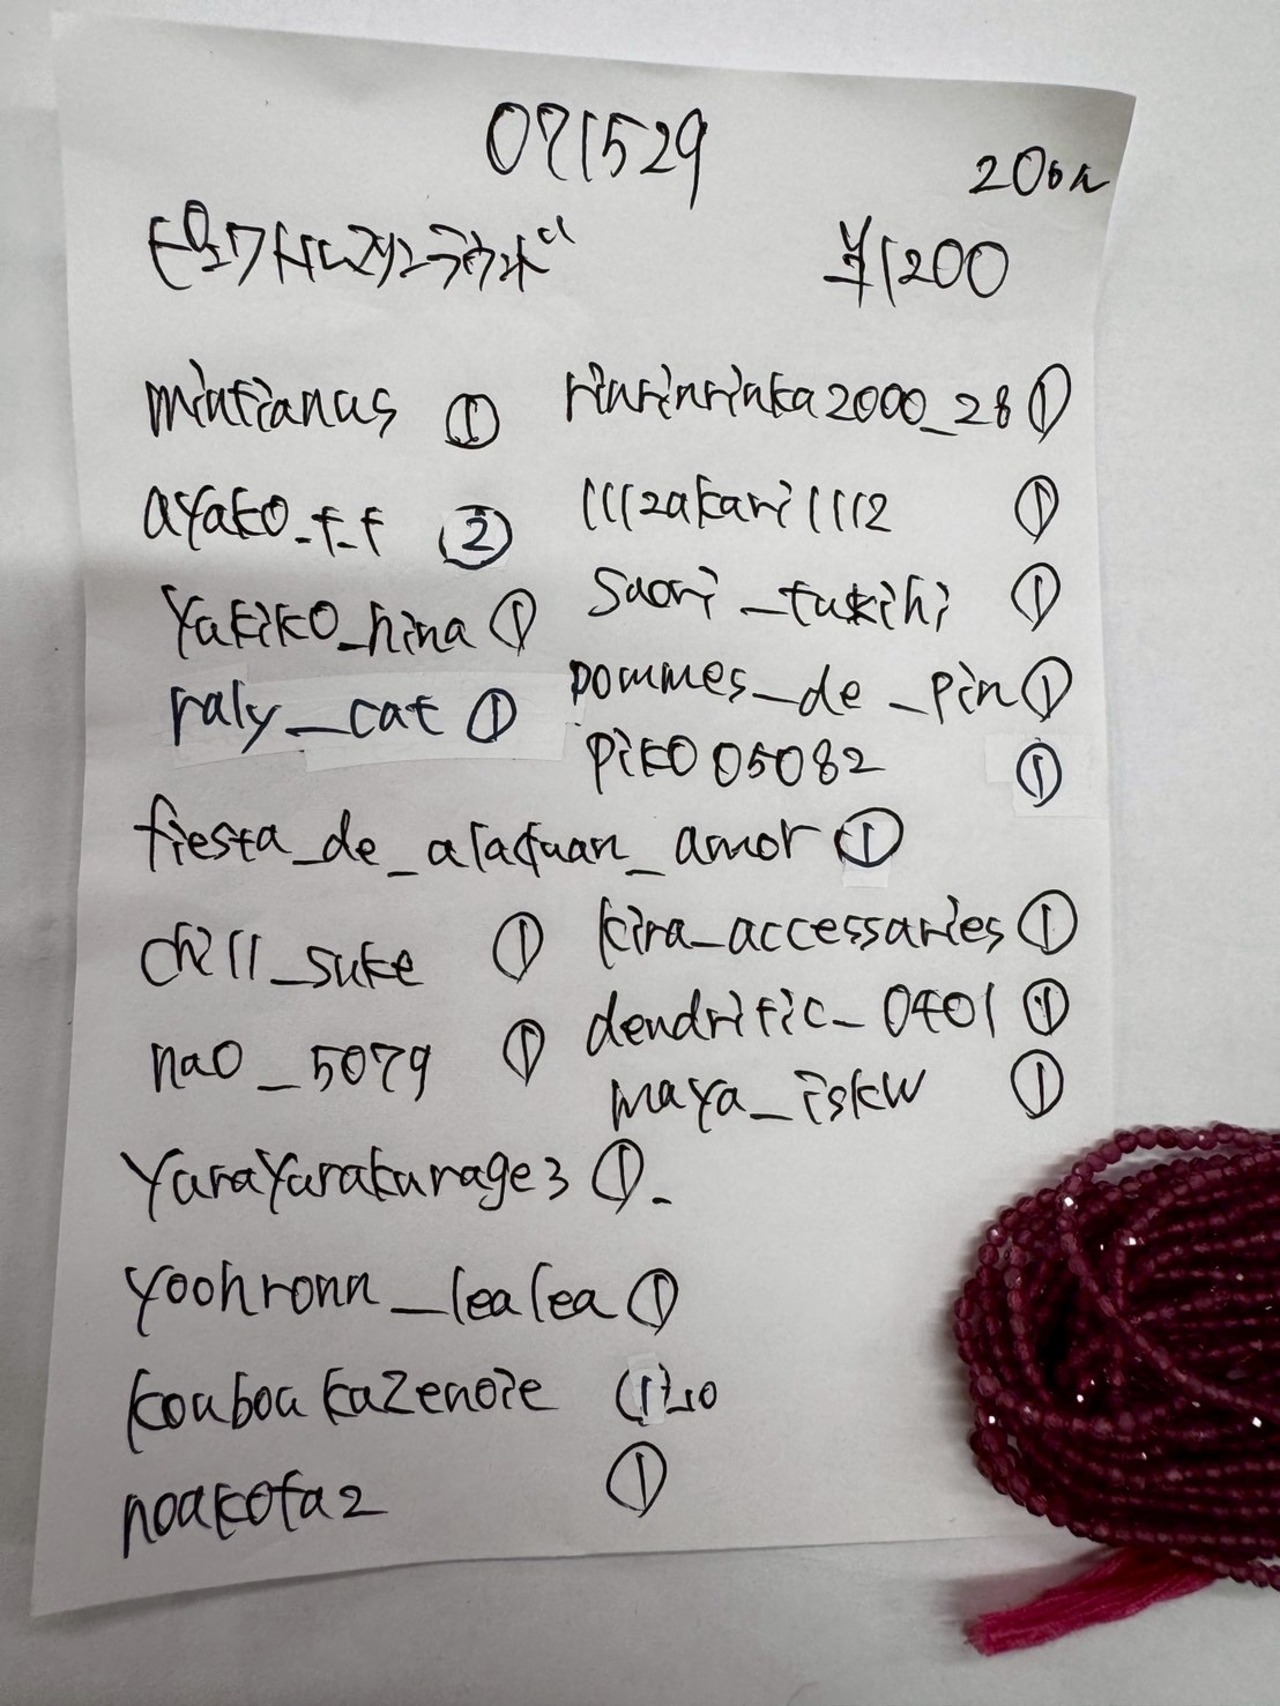 071529
20on
¥1200
mintianas ①
rinrinrinka2000_28 ①
ayako_f_f ②
1112akari1112 ①
yakiko_hina ①
saori_takihi ①
raly_cat ①
pommes_de_pin ①
piko05082 ①
fiesta_de_alacfuan_amor ①
chill_suke ①
kira_accessaries ①
nao_5079 ①
dendritic_0401 ①
maya_iskw ①
yarayarakurage3 ①
yoohronn_lealea ①
koubou kazenoie
noakota2 ①